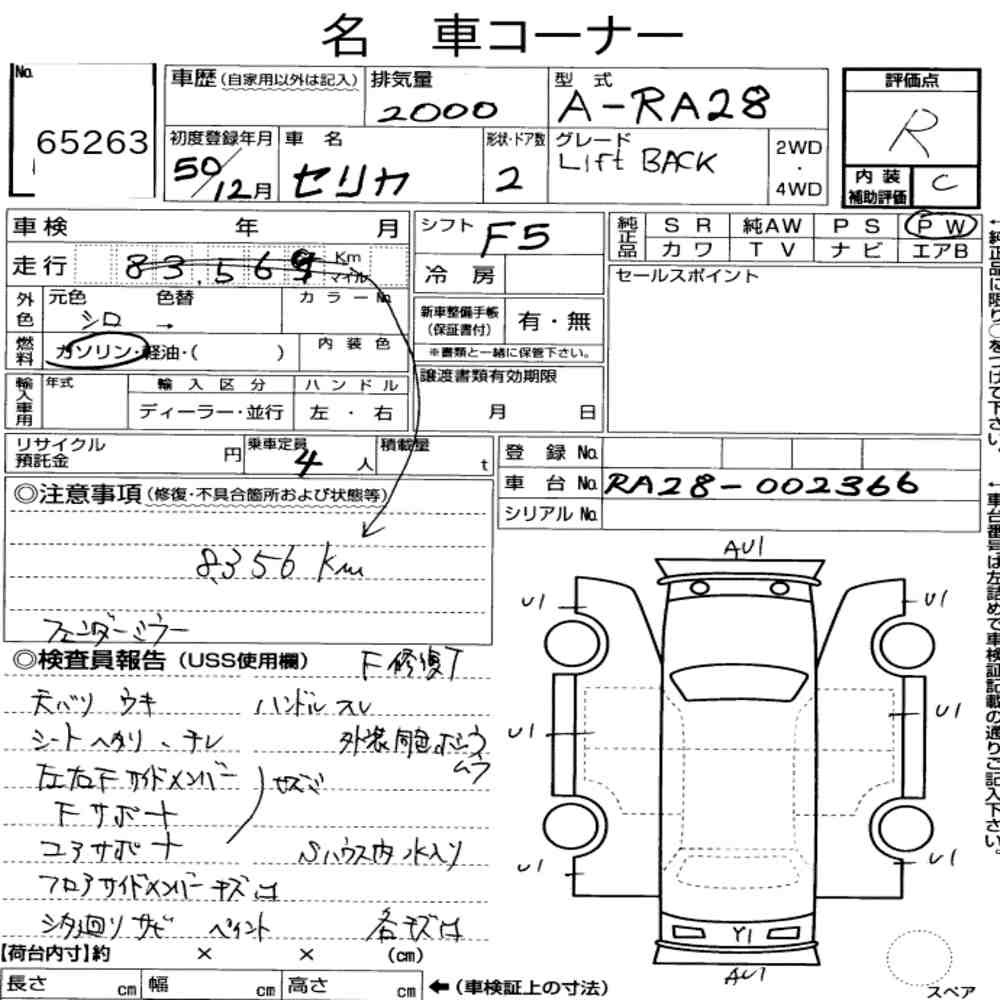 名 車コーナー
No. 65263
車歴(自家用以外は記入)
排気量 2000
型式 A-RA28
初度登録年月 50/12月
車名 セリカ
形状・ドア数 2
グレード Lift BACK
2WD・4WD
評価点 R
内装補助評価 C
車検 年 月
走行 83,569 Km マイル
外色 元色 シロ 色替 → カラーNo.
燃料 ガソリン・軽油・( ) 内装色
輸入車用 年式 輸入区分 ディーラー・並行 ハンドル 左・右
シフト F5
冷房
新車整備手帳(保証書付) 有・無
※書類と一緒に保管下さい。
譲渡書類有効期限 月 日
純正品 SR 純AW PS PW
カワ TV ナビ エアB
セールスポイント
←純正品に限り○をつけて下さい。
リサイクル預託金 円
乗車定員 4人
積載量 t
登録No.
車台No. RA28-002366
シリアルNo.
←車台番号は左詰めで車検証記載の通りご記入下さい。
◎注意事項(修復・不具合箇所および状態等)
8356 Km
フェンダーミラー
◎検査員報告(USS使用欄) F修復丁
天バリ ウキ ハンドル スレ
シートヘタリ、チレ 外装同色ボシウムラ
左右Fサイドメンバー
Fサポート
コアサポート Sハウス内水入り
フロアサイドメンバー キズ凹
シタ廻リサビ ペイント 各キズ凹
AU1
U1 U1
U1 U1
U1 U1
Y1
AU1
スペア
【荷台内寸】約 × × (cm)
長さ cm 幅 cm 高さ cm ←(車検証上の寸法)